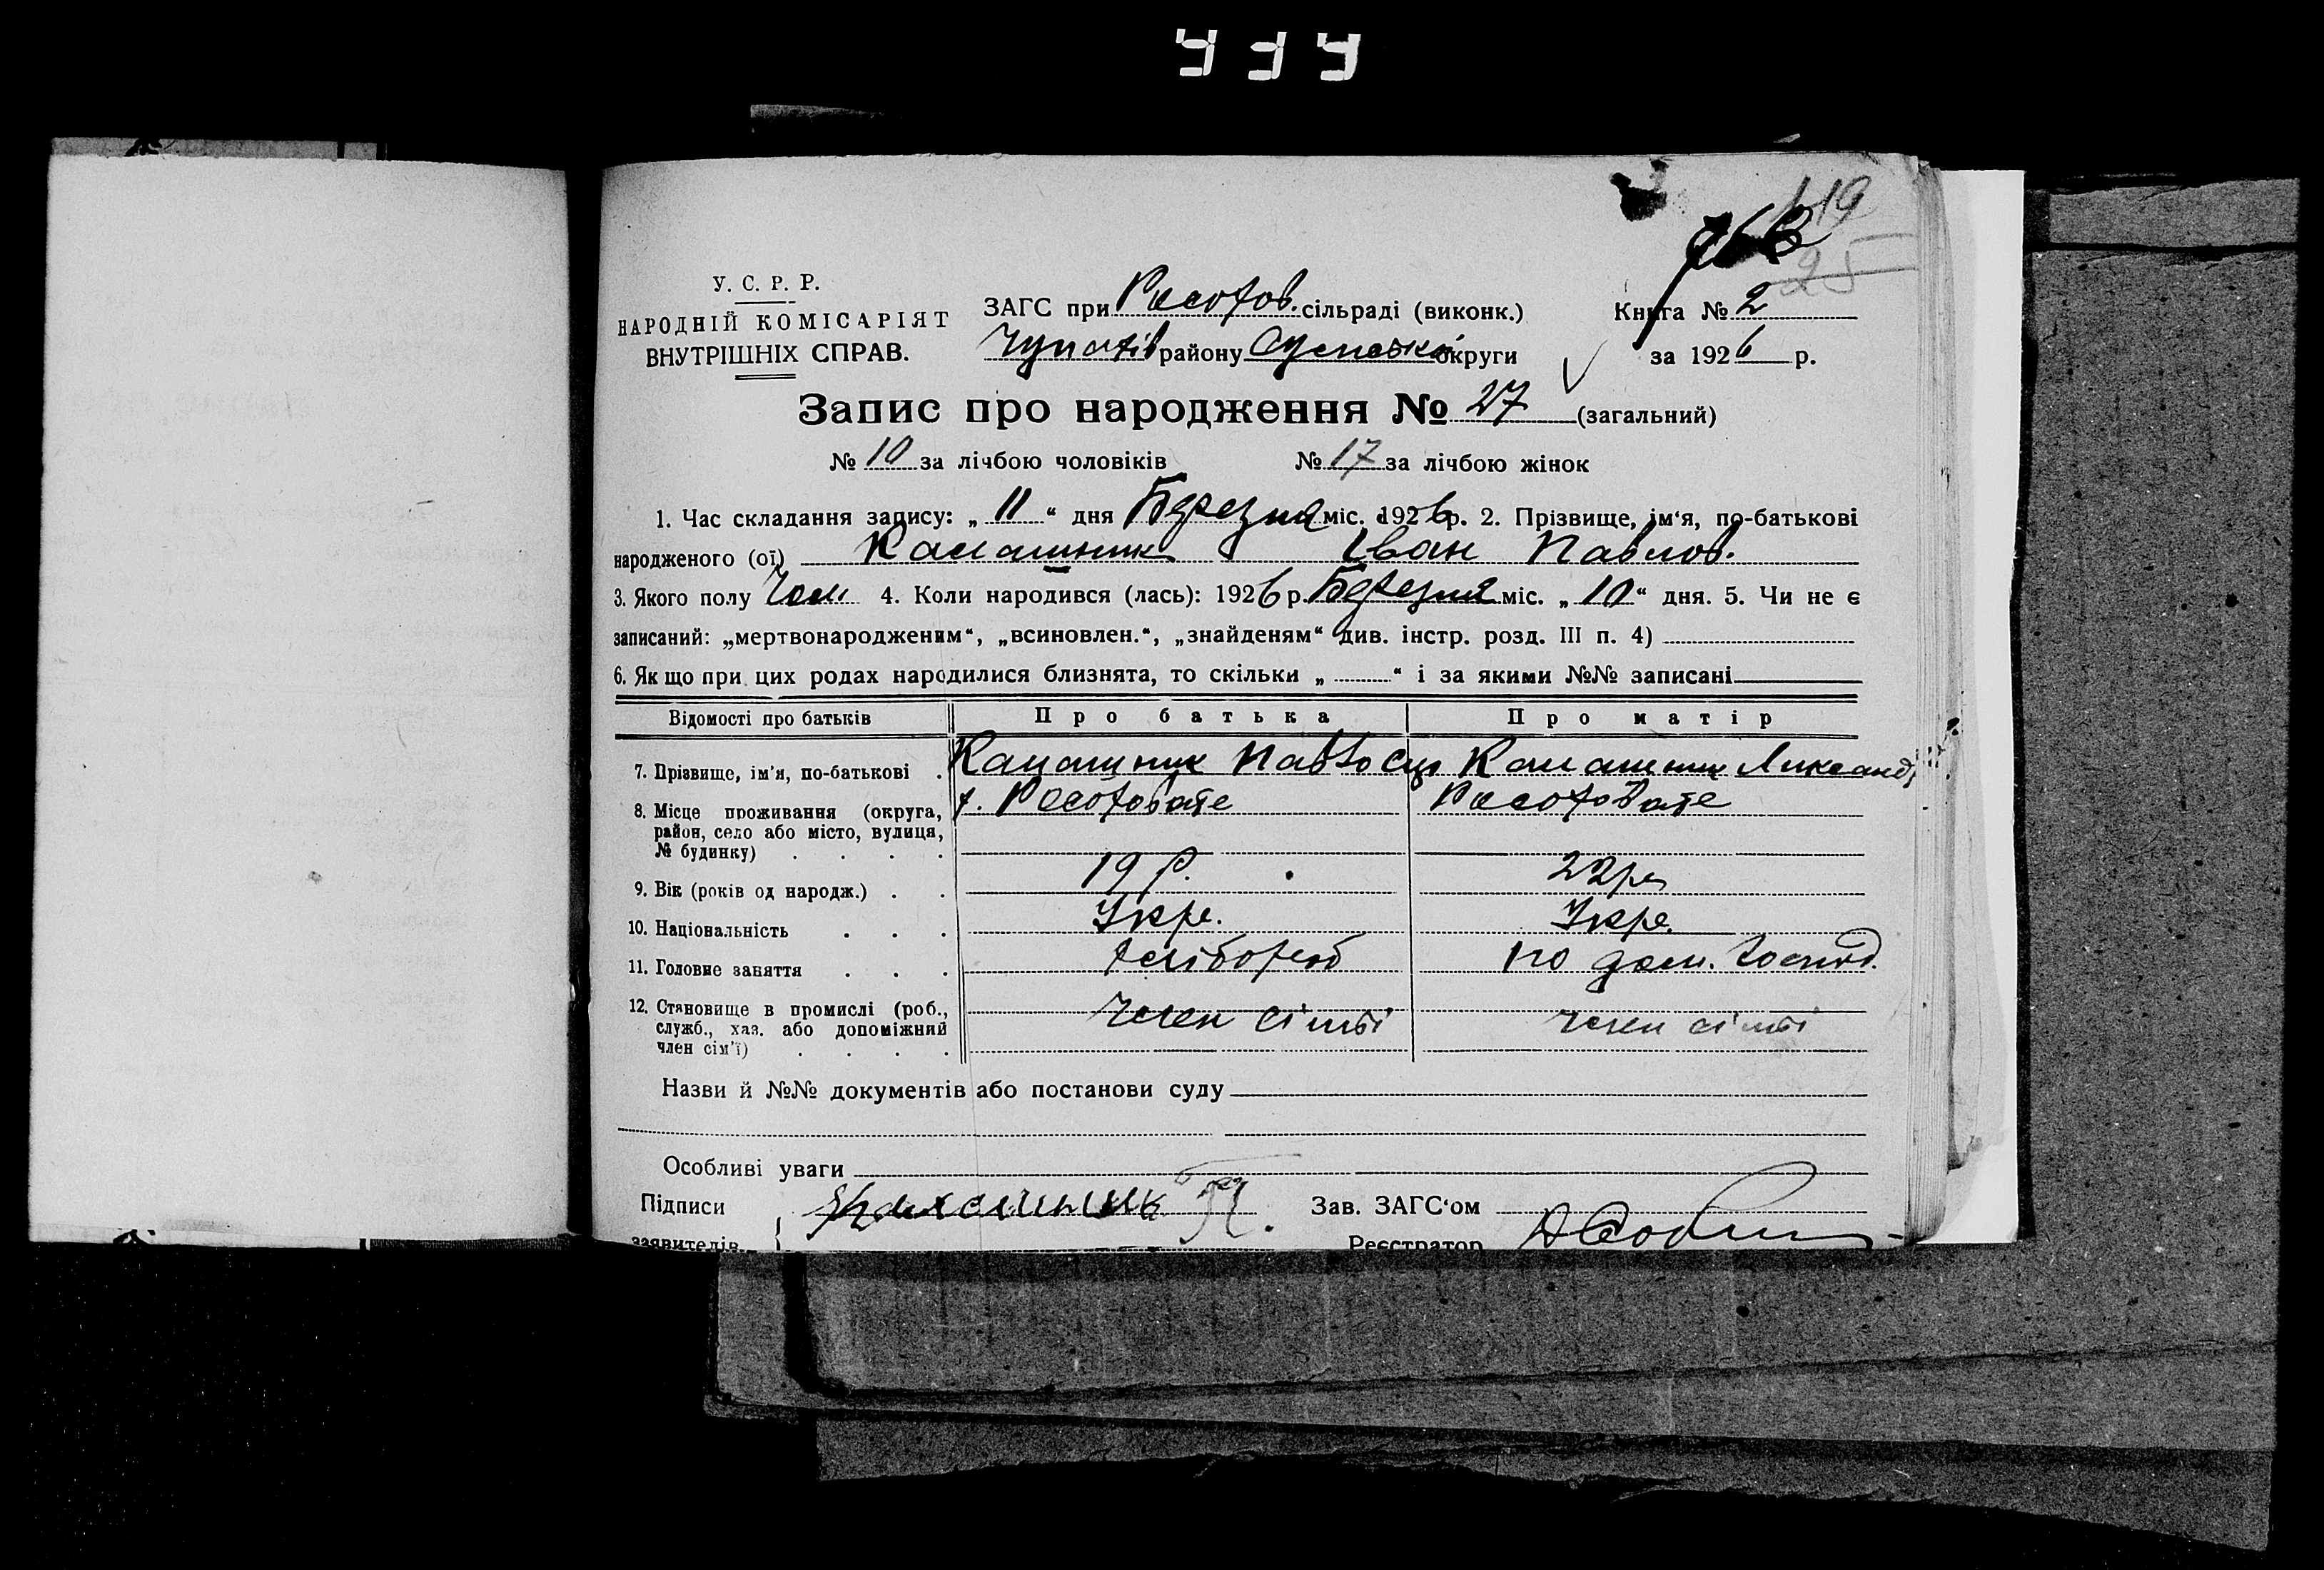 119
25
У. С. Р. Р.
НАРОДНІЙ КОМІСАРІЯТ
ВНУТРІШНІХ СПРАВ.
ЗАГС при сільраді (виконк.)
району округи
Книга № 2
за 1926 р.
Запис про народження № 27 (загальний)
№ 10 за лічбою чоловіків № 17 за лічбою жінок
1. Час складання запису: „ 11 “ дня Березня міс. 1926 р. 2. Прізвище, ім‘я, по-батькові
народженого (ої) Іван Павлов.
3. Якого полу Чол 4. Коли народився (лась): 1926 р. Березня міс. „ 10 “ дня. 5. Чи не є
записаний: „мертвонародженим“, „всиновлен.“, „знайденям“ див. інстр. розд. III п. 4)
6. Якщо при цих родах народилися близнята, то скільки „ “ і за якими №№ записані
Відомості про батьків Про батька Про матір
7. Прізвище, ім’я, по-батькові
8. Місце проживання (округа,
район, село або місто, вулиця,
№ будинку)
9. Вік (років од народж.) 19 р. 22 р
10. Національність Укр. Укр.
11. Головне заняття хлібороб по дом. господ.
12. Становище в промислі (роб.,
служб., хаз. або допоміжний
член сім’ї) член сімї член сімї
Назви й №№ документів або постанови суду
Особливі уваги
Підписи Зав. ЗАГС‘ом
заявителів Реєстратор